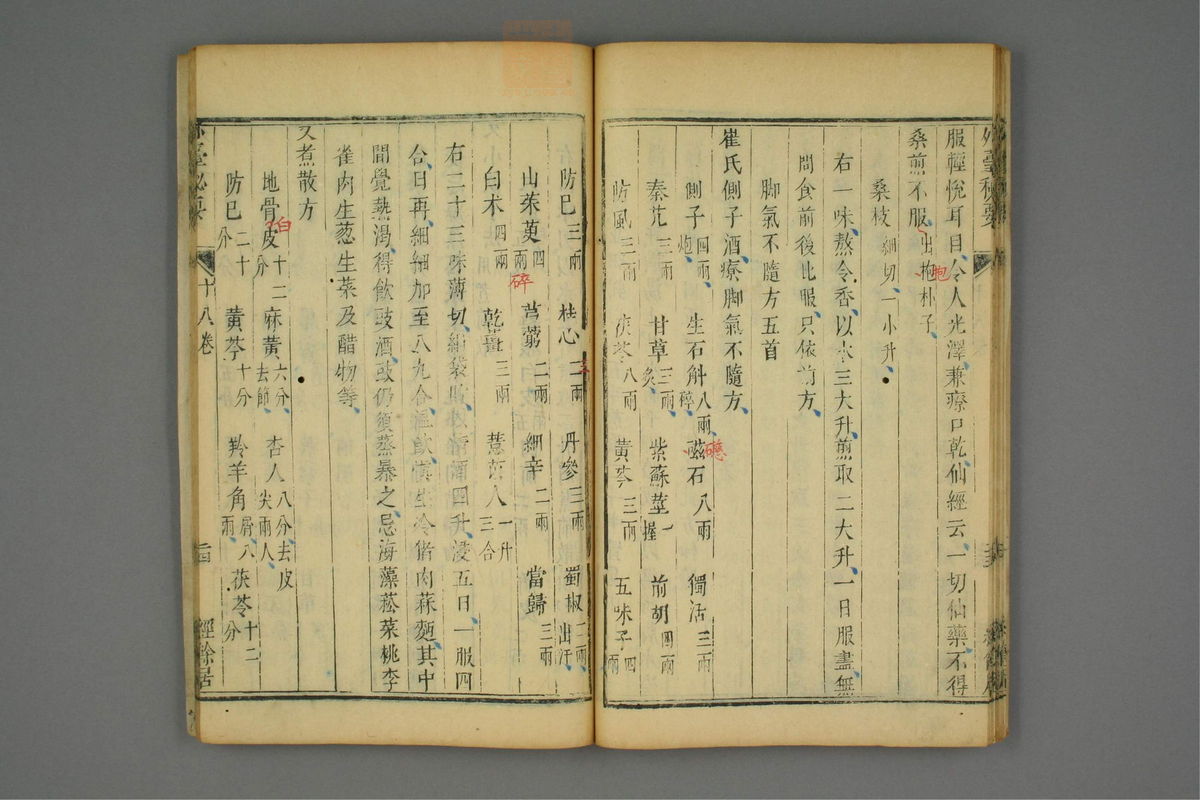 服輕悅耳目令人光澤兼療口乾仙經云一切仙藥不得
桑煎不服出抱朴子
胞
桑枝細切一小升
右一味熬令香以水三大升煎取二大升一日服盡無
問食前後此服只依前方
脚氣不隨方五首
崔氏側子酒療脚氣不隨方
側子四兩炮 生石斛八兩 磁石八兩 獨活三兩
秦艽三兩 甘草三兩炙 紫蘇莖一握 前胡四兩
防風三兩 茯苓八兩 黃芩三兩 五味子四兩
防巳三兩 桂心二兩 丹參三兩 蜀椒二兩出汗
山茱萸四兩 芎藭二兩 細辛二兩 當歸三兩
碎
白木四兩 乾薑三兩 薏苡人一升三合
右二十三味薄切絹袋貯以清酒四升浸五日一服四
合日再細細加至八九合溫飲慎生冷猪肉蒜麪其中
間覺熱渴得飲豉酒豉仍須蒸暴之忌海藻菘菜桃李
雀肉生葱生菜及醋物等
又煮散方
地骨皮十二分 麻黃六分去節 杏人八分去皮尖兩人
白
防巳二十分 黃芩十分 羚羊角屑八兩 茯苓十二分
外臺秘要 十八卷 經餘居